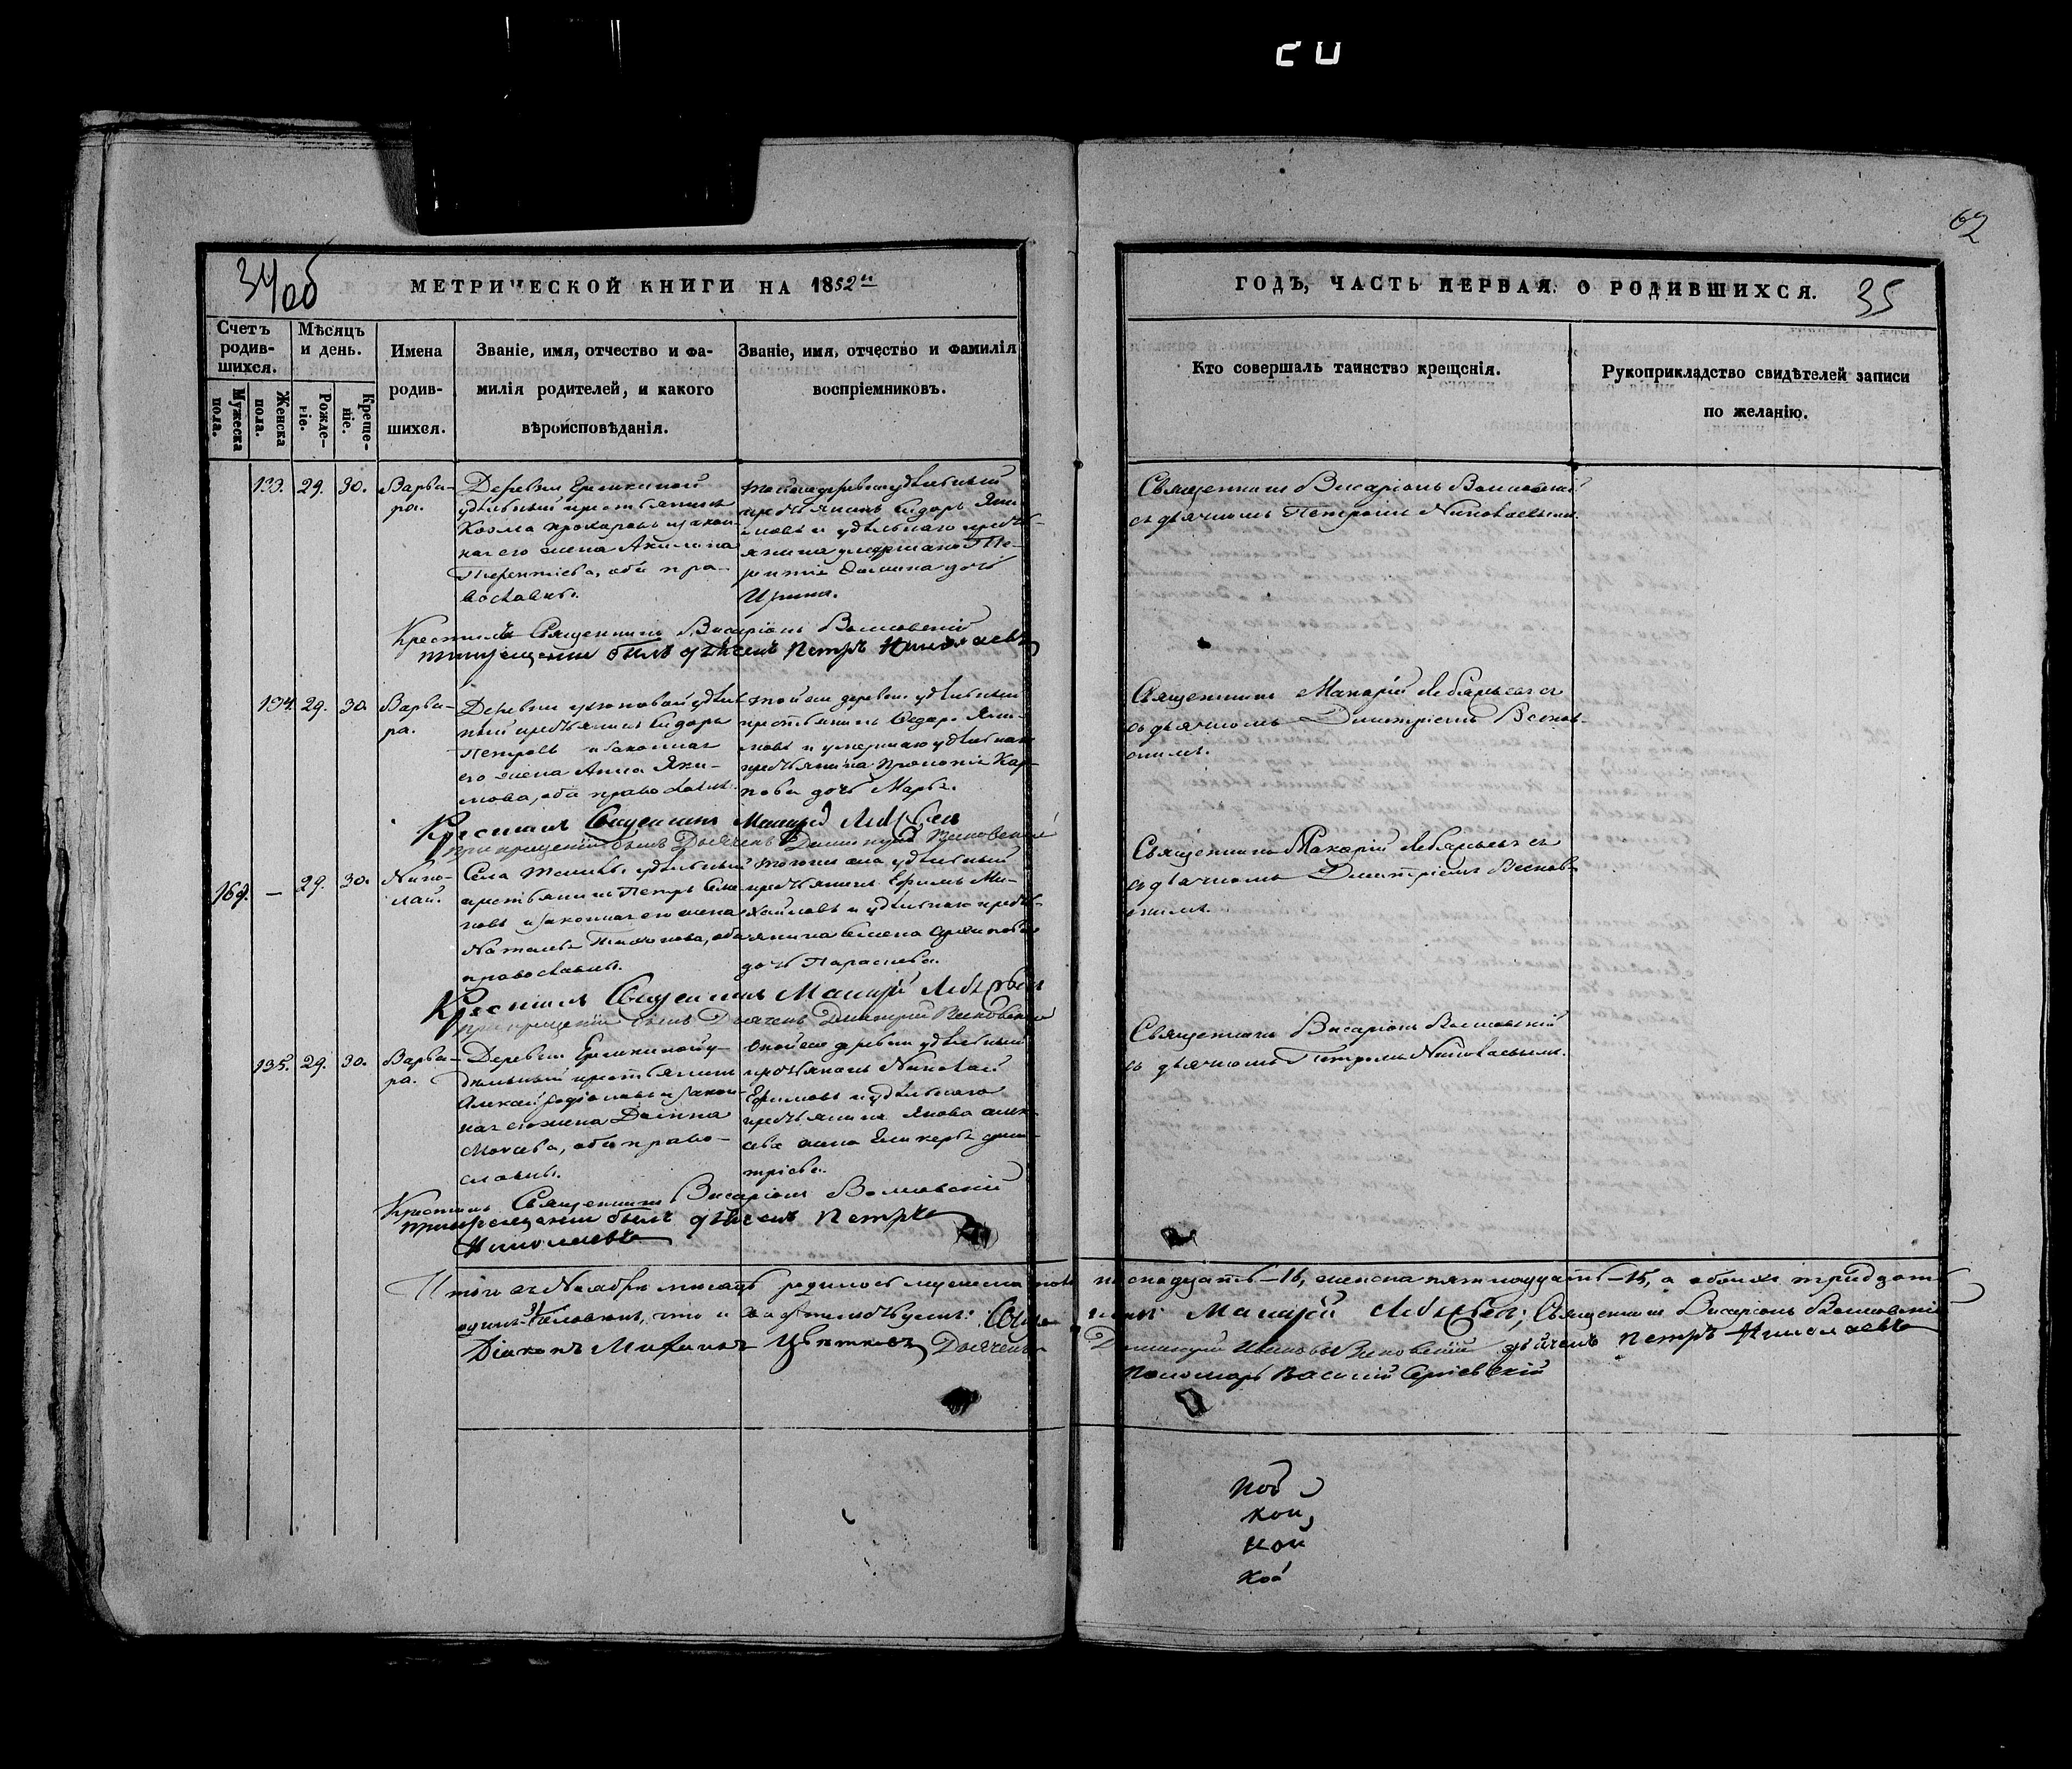 62
34 об
МЕТРИЧЕСКОЙ КНИГИ НА 1852й
ГОДЪ, ЧАСТЬ ПЕРВАЯ. О РОДИВШИХСЯ.
35
Счетъ родив-шихся.
Мужеска пола.
Женска пола.
Мѣсяцъ и день.
Рожде-ніе.
Креще-ніе.
Имена
родив-
шихся.
Званіе, имя, отчество и фа-
милія родителей, и какого
вѣроисповѣданія.
Званіе, имя, отчество и фамилія
воспріемниковъ.
Кто совершалъ таинство крещенія.
Рукоприкладство свидѣтелей записи
по желанію.
133. 29. 30. Варва-
ра.
Деревни Еремкиной
удѣльный крестьянинъ
Козма Прохоровъ и закон-
ная его жена Акилина
Терентіева, оба пра-
вославны.
Той же деревни удѣльный
крестьянинъ Сидоръ Яки-
мовъ и удѣльнаго кресть-
янина умершаго Те-
рентія дочь
Ирина.
Священникъ Висаріонъ
съ дьячкомъ Петромъ Николаевымъ.
Крестилъ Священникъ Висаріонъ
при крещеніи былъ дьячекъ Петръ Николаевъ
134. 29. 30. Варва-
ра.
Деревни удѣль-
ный крестьянинъ Сидоръ
Петровъ и законная
его жена Анна Яки-
мова, оба православны.
Той же деревни удѣльный
крестьянинъ Сидоръ Яки-
мовъ и умершаго удѣльнаго
крестьянина Прокопія Кар-
пова дочь Марья.
Священникъ Макарій Лебедевъ
съ дьячкомъ Димитріемъ
Крестилъ Священникъ Макарій Лебедевъ
при крещеніи былъ Дьячекъ Димитрій
169. — 29. 30. Нико-
лай.
Села удѣльный
крестьянинъ Петръ
и законная его жена
Наталья оба
православны.
Того же села удѣльный
крестьянинъ Ефимъ Ми-
хайловъ и удѣльнаго кресть-
янина Семена
дочь Параскева.
Священникъ Макарій Лебедевъ
съ дьячкомъ Димитріемъ
Крестилъ Священникъ Макарій Лебедевъ
при крещеніи былъ Дьячекъ Димитрій
135. 29. 30. Варва-
ра.
Деревни Еремкиной у-
дѣльный крестьянинъ
Алексѣй Родіоновъ и закон-
ная его жена Домна
оба право-
славны.
Той же деревни удѣльный
крестьянинъ Николай
Ефимовъ и удѣльнаго
крестьянина Якова Алек-
сѣева жена Гликерья Дми-
тріева.
Священникъ Висаріонъ
съ дьячкомъ Петромъ Николаевымъ.
Крестилъ Священникъ Висаріонъ
при крещеніи былъ дьячекъ Петръ
Николаевъ
Итого въ Ноябрѣ мѣсяцѣ родилось мужеска пола шеснадцать—16, женска пятнадцать—15, а обоихъ тридцать
одинъ 31 человѣкъ, что и свидѣтельствуемъ: Священникъ Макарій Лебедевъ; Священникъ Висаріонъ
Діаконъ Михаилъ Цвѣтковъ Дьячекъ Димитрій дьячекъ Петръ Николаевъ
Пономарь Василій Сергіевскій